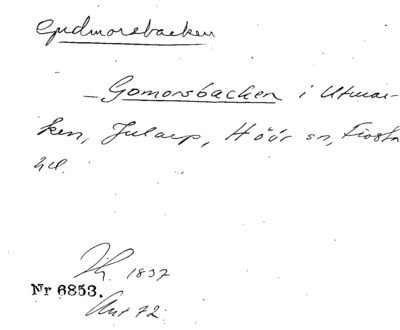 Gudmorsbacken
– Gomorsbacken i Utmar-
ken, Jularp, Höör sn, Frosta
hd.
1837
Nr 6853.
Ant 72